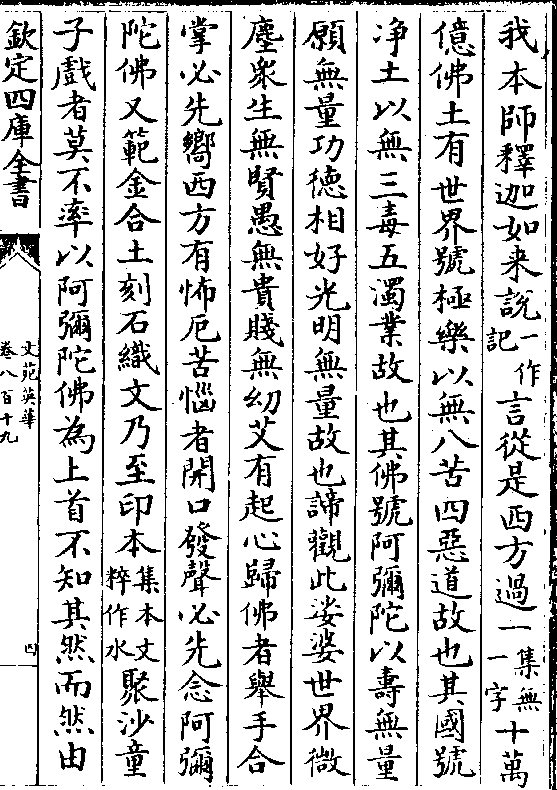 我本師釋迦如来說一作記言從是西方過一集無一字十萬
億佛土有世界號極樂以無八苦四惡道故也其國號
淨土以無三毒五濁業故也其佛號阿彌陀以壽無量
願無量功德相好光明無量故也諦觀此娑婆世界微
塵衆生無賢愚無貴賤無幼艾有起心歸佛者舉手合
掌必先嚮西方有怖厄苦惱者開口發聲必先念阿彌
陀佛又範金合土刻石織文乃至印本集本文粹作水聚沙童
子戲者莫不率以阿彌陀佛為上首不知其然而然由
欽定四庫全書
文苑英華
卷八百十九
四